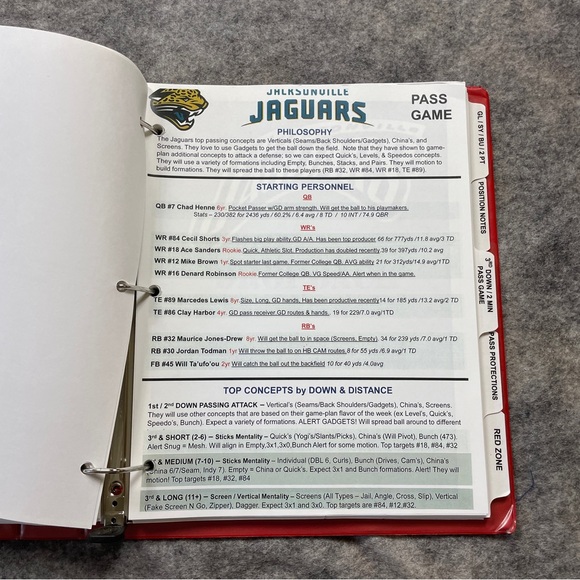 JACKSONVILLE
JAGUARS
PASS
GAME
PHILOSOPHY
The Jaguars top passing concepts are Verticals (Seams/Back Shoulders/Gadgets), China's, and
Screens. They love to use Gadgets to get the ball down the field. Note that they have shown to game-
plan additional concepts to attack a defense; so we can expect Quick's, Levels, & Speedos concepts.
They will use a variety of formations including Empty, Bunches, Stacks, and Pairs. They will motion to
build formations. They will spread the ball to these players (RB #32, WR #84, WR #18, TE #89).
STARTING PERSONNEL
QB
QB #7 Chad Henne 6yr. Pocket Passer w/GD arm strength. Will get the ball to his playmakers.
Stats – 230/382 for 2436 yds / 60.2% / 6.4 avg / 8 TD / 10 INT / 74.9 QBR
WR's
WR #84 Cecil Shorts 3yr. Flashes big play ability. GD A/A. Has been top producer 66 for 777yds /11.8 avg/3 TD
WR #18 Ace Sanders Rookie. Quick, Athletic Slot, Production has doubled recently. 39 for 397yds /10.2 avg
WR #12 Mike Brown 1yr. Spot starter last game. Former College QB. AVG ability 21 for 312yds/14.9 avg/1TD
WR #16 Denard Robinson Rookie. Former College QB, VG Speed/AA. Alert when in the game.
TE's
TE #89 Marcedes Lewis 8yr. Size, Long, GD hands, Has been productive recently 14 for 185 yds /13.2 avg/2 TD
TE #86 Clay Harbor 4yr. GD pass receiver. GD routes & hands. 19 for 229/7.0 avg/1TD
RB's
RB #32 Maurice Jones-Drew 8yr. Will get the ball to in space (Screens, Empty). 34 for 239 yds /7.0 avg/1 TD
RB #30 Jordan Todman 1yr Will throw the ball to on HB CAM routes. 8 for 55 yds /6.9 avg/1 TD
FB #45 Will Ta'ufo'ou 2yr Will catch the ball out the backfield 10 for 40 yds /4.0avg
TOP CONCEPTS by DOWN & DISTANCE
1st / 2nd DOWN PASSING ATTACK – Vertical's (Seams/Back Shoulders/Gadgets), China's, Screens.
They will use other concepts that are based on their game-plan flavor of the week (ex Level's, Quick's,
Speedo's, Bunch). Expect a variety of formations. ALERT GADGETS! Will spread ball around to different
3rd & SHORT (2-6) – Sticks Mentality – Quick's (Yogi's/Slants/Picks), China's (Will Pivot), Bunch (473).
Alert Snug = Mesh. Will align in Empty,3x1,3x0,Bunch Alert for some motion. Top targets #18, #32, #84
& MEDIUM (7-10) – Sticks Mentality – Individual (DBL 6, Curls), Bunch (Drives, Cam's), China's
(China 6/7/Seam, Indy 7). Empty = China or Quick's. Expect 3x1 and Bunch formations. Alert! They will
motion! Top targets #18, #32, #84
3rd & LONG (11+) – Screen / Vertical Mentality – Screens (All Types – Jail, Angle, Cross, Slip), Vertical
(Fake Screen N Go, Zipper), Dagger. Expect 3x1 and 3x0. Top targets are #84, #12,#32.
GL / SY / BU / 2 PT
POSITION NOTES
3RD DOWN / 2 MIN
PASS GAME
PASS PROTECTIONS
RED ZONE